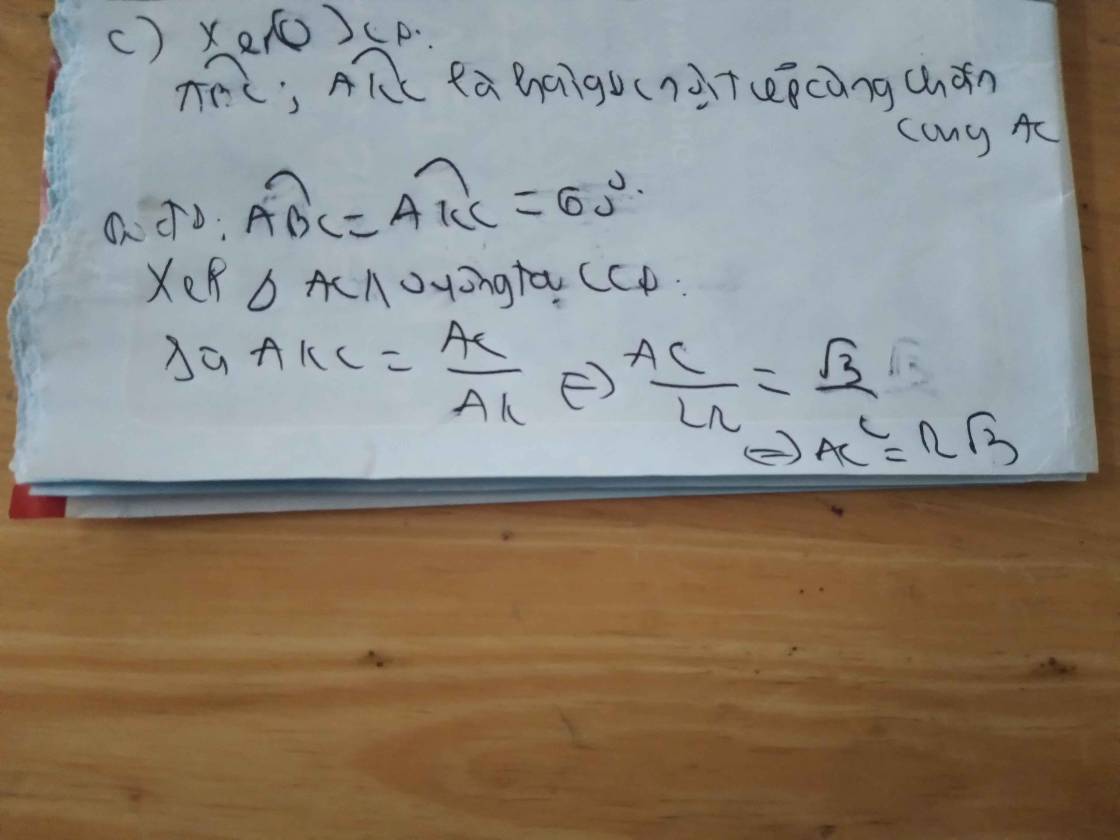 c) Xét (O) có:
ABC; AKC là hai góc nội tiếp cùng chắn
cung AC
do đó: ABC = AKC = 60°.
Xét Δ ACK vuông tại C có:
AKC = AC/AK ⇔ AC/2R = √3
⇔ AC = R√3